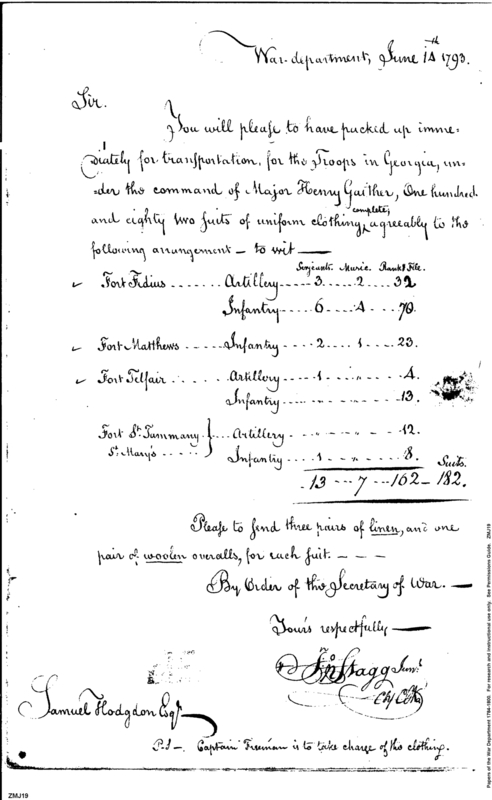 War-department, June 14th 1793.
Sir.
You will please to have packed up imme-
-diately for transportation, for the Troops in Georgia, un-
-der the command of Major Henry Gaither, One hundred
and eighty two suits of uniform clothing, complete, agreeably to the
following arrangement — to wit —
Serjeants. Music. Rank & File.
Fort Fidius ....... Artillery ---- 3. ... 2 ... 32
Infantry ---- 6 ... 4 ... 70.
Fort Matthews ..... Infantry ---- 2 ... 1 ... 23.
Fort Telfair ...... Artillery ---- 1 ... " ... 4.
Infantry ---- " ... " ... 13.
Fort St. Tammany } Artillery - - " ... " ... 12.
St. Mary's ..... } Infantry ---- 1 ... " ... 8. Suits.
13 --- 7 --- 162 - 182.
Please to send three pairs of linen, and one
pair of woolen overalls, for each suit. - - -
By Order of the Secretary of War. —
Your's respectfully —
Jno Stagg Junr.
Chf Clk
Samuel Hodgdon Esqr.
P.S — Captain Freeman is to take charge of the clothing.
ZMJ19
Papers of the War Department 1784-1800. For research and instructional use only. See Permissions Guide. ZMJ19